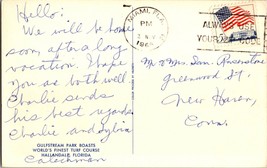 Hello:
We will be home
soon, after a long
vacation. Hope
you are both well
Charlie sends
his best regards
Charlie and Sylvia
GULFSTREAM PARK BOASTS
WORLD'S FINEST TURF COURSE
HALLANDALE, FLORIDA
MIAMI, FLA.
PM
ALWAYS
YOUR CODE
Mr & Mrs. Sam
Greenwood St.
New Haven,
Conn.